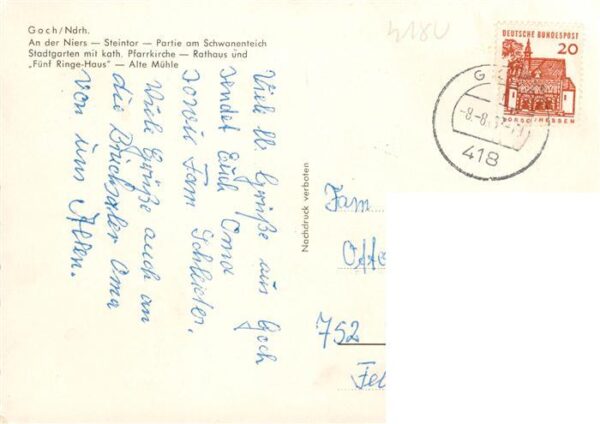 Goch/Ndrh.
An der Niers — Steintor — Partie am Schwanenteich
Stadtgarten mit kath. Pfarrkirche — Rathaus und
„Fünf Ringe-Haus" — Alte Mühle
4180
DEUTSCHE BUNDESPOST
20
LORSCH/HESSEN
-8.-8.
418
Viele lb Grüße aus Goch
sendet Euch Oma
sowie Fam
Viele Grüße auch an
die Bruchsaler Oma
von uns Allen.
Nachdruck verboten
Fam
752